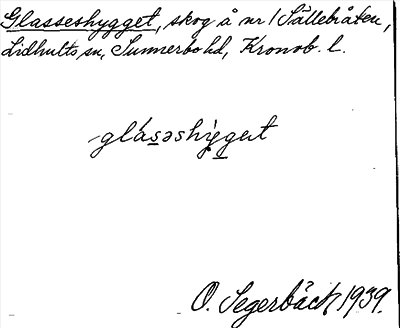 Glasseshygget, skog å nr 1 Sällebråten,
Lidhults sn, Sunnerbo hd, Kronob. l.
-glásəshýgət
O. Segerbäck 1939.